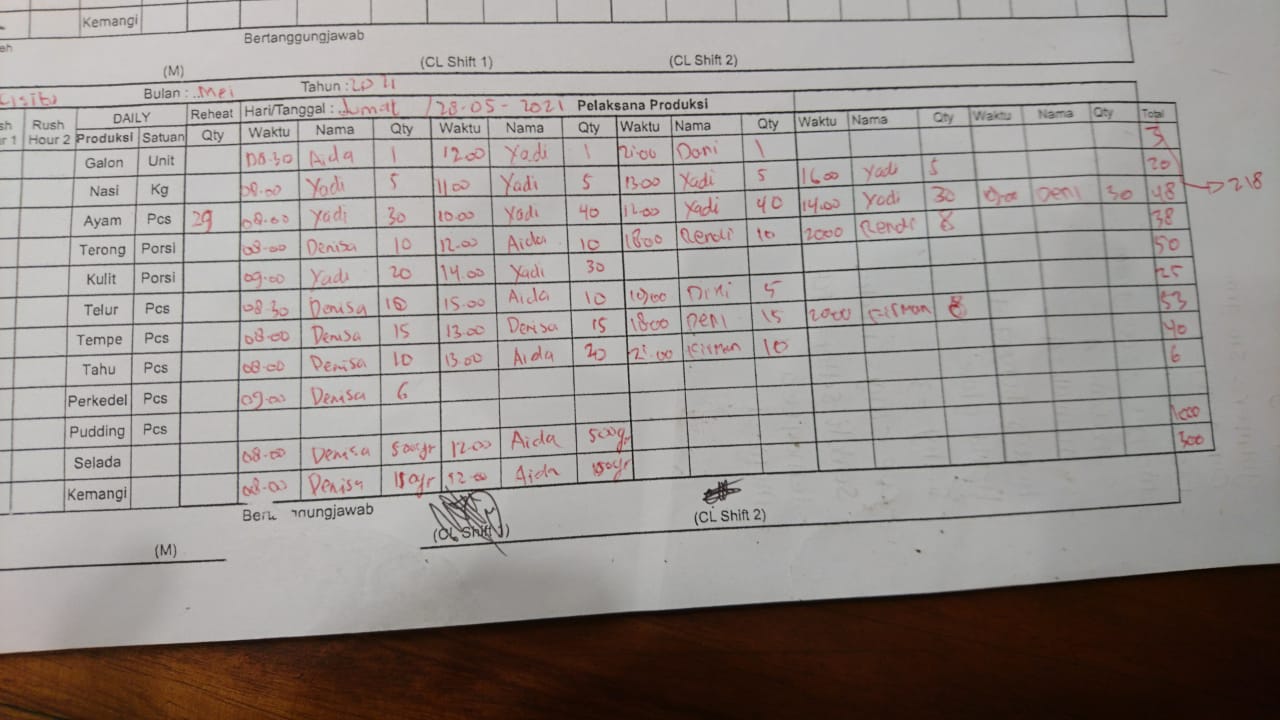 Kemangi
Bertanggungjawab
(M) (CL Shift 1) (CL Shift 2)
Bulan : Mei Tahun : 2021
Rush DAILY Reheat Hari/Tanggal : Jumat / 28-05-2021 Pelaksana Produksi
Hour 2 Produksi Satuan Qty Waktu Nama Qty Waktu Nama Qty Waktu Nama Qty Waktu Nama Qty Waktu Nama Qty Total
Galon Unit 08.30 Aida 1 12.00 Yadi 1 21.00 Doni 1 3
Nasi Kg 08.00 Yadi 5 11.00 Yadi 5 13.00 Yadi 5 16.00 Yadi 5 20
Ayam Pcs 29 08.00 Yadi 30 10.00 Yadi 40 12.00 Yadi 40 14.00 Yadi 30 Deni 30 48 → 218
Terong Porsi 08.00 Denisa 10 12.00 Aida 10 1800 Rendi 10 2000 Rendi 8 38
Kulit Porsi 09.00 Yadi 20 14.00 Yadi 30 50
Telur Pcs 08.30 Denisa 10 15.00 Aida 10 5 25
Tempe Pcs 08.00 Denisa 15 13.00 Denisa 15 1800 Deni 15 2000 Kisman 8 53
Tahu Pcs 08.00 Denisa 10 13.00 Aida 20 21.00 Kisman 10 40
Perkedel Pcs 09.00 Denisa 6 6
Pudding Pcs
Selada 08.00 Denisa 500gr 12.00 Aida 500gr 1000
Kemangi 08.00 Denisa 150gr 12.00 Aida 150gr 300
(M) (CL Shift 1) (CL Shift 2)